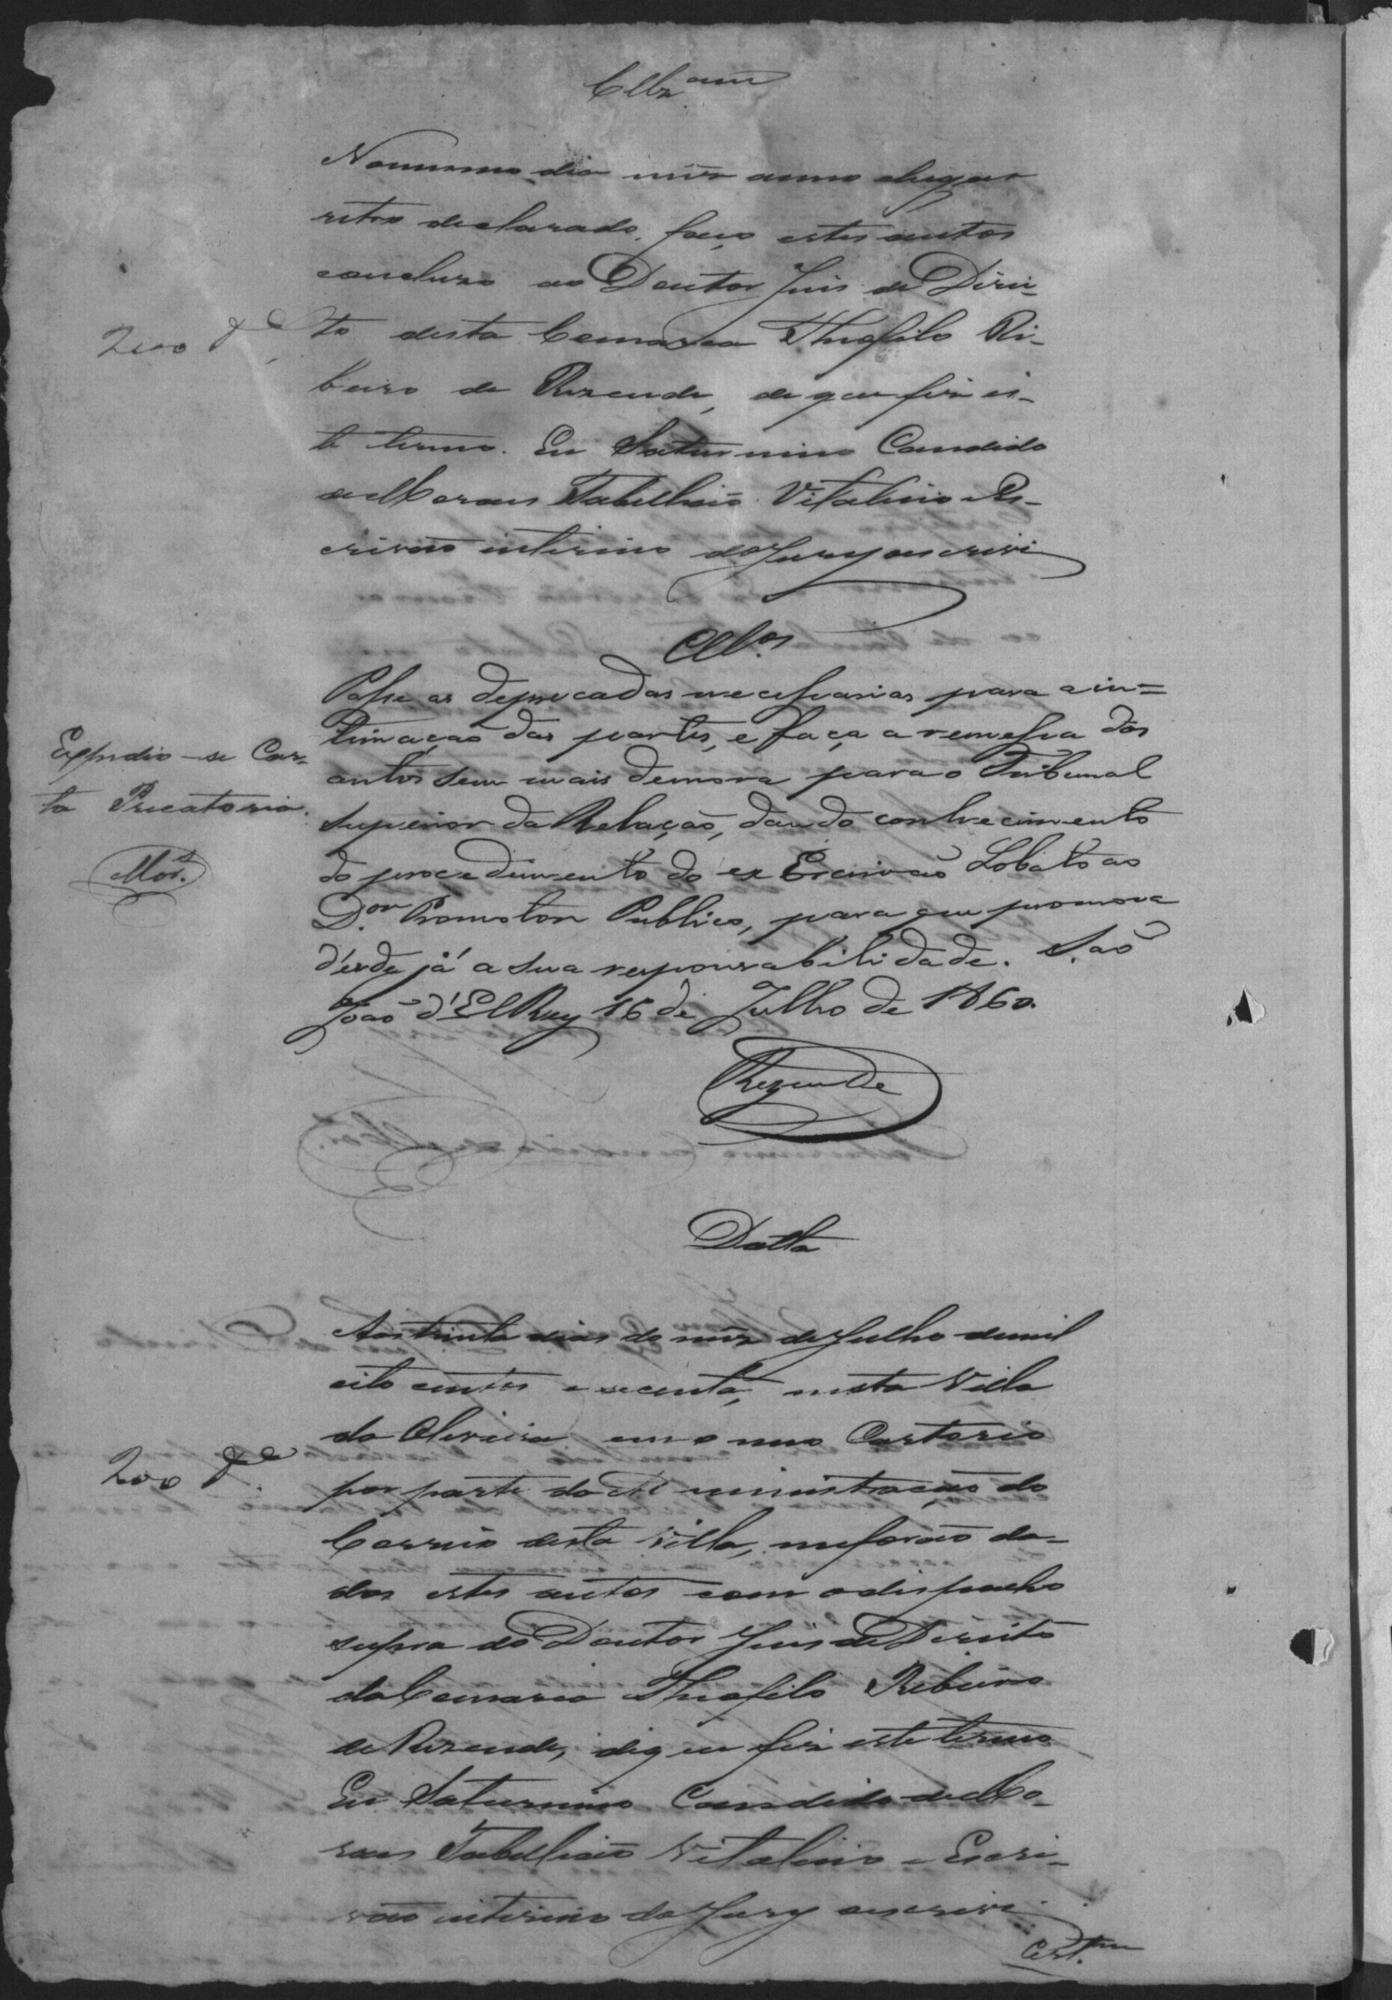 Clz.am
No mesmo dia mez anno e lugar
retro declarado, faço estes autos
concluzo ao Doutor Juis de Direi-
200 to desta Comarca Theofilo Ri-
beiro de Rezende, de que fiz es-
te termo. Eu Saturnino Candido
de Moraes Tabellião Vitalicio e Es-
crivão interino do Jury o escrivi
Cllos.
Passe as deprecadas necessarias para a in=
timação das partes, e faça a remessa dos
autos sem mais demora para o Tribunal
superior da Relação, dando conhecimento
do procedimento do ex Escrivão Lobato ao
D.or Promotor Publico, para que promova
désde já a sua responsabilidade. São
João d'El Rey 16 de Julho de 1860.
Expedio-se Car-
ta Precatoria.
Mor.s
Rezende
Datta
Aos trinta dias do mez de Julho de mil
oito centos e secenta, nesta Villa
da Oliveira em o meo Cartorio
200 por parte da Administração do
Correio desta Villa, me forão da-
dos estes autos com o dispacho
supra do Doutor Juis de Direito
da Comarca Theofilo Ribeiro
de Rezende, de que fiz este termo
Eu Saturnino Candido de Mo-
raes Tabellião Vitalicio e Escri-
vão interino do Jury o escrivi
Cert.am